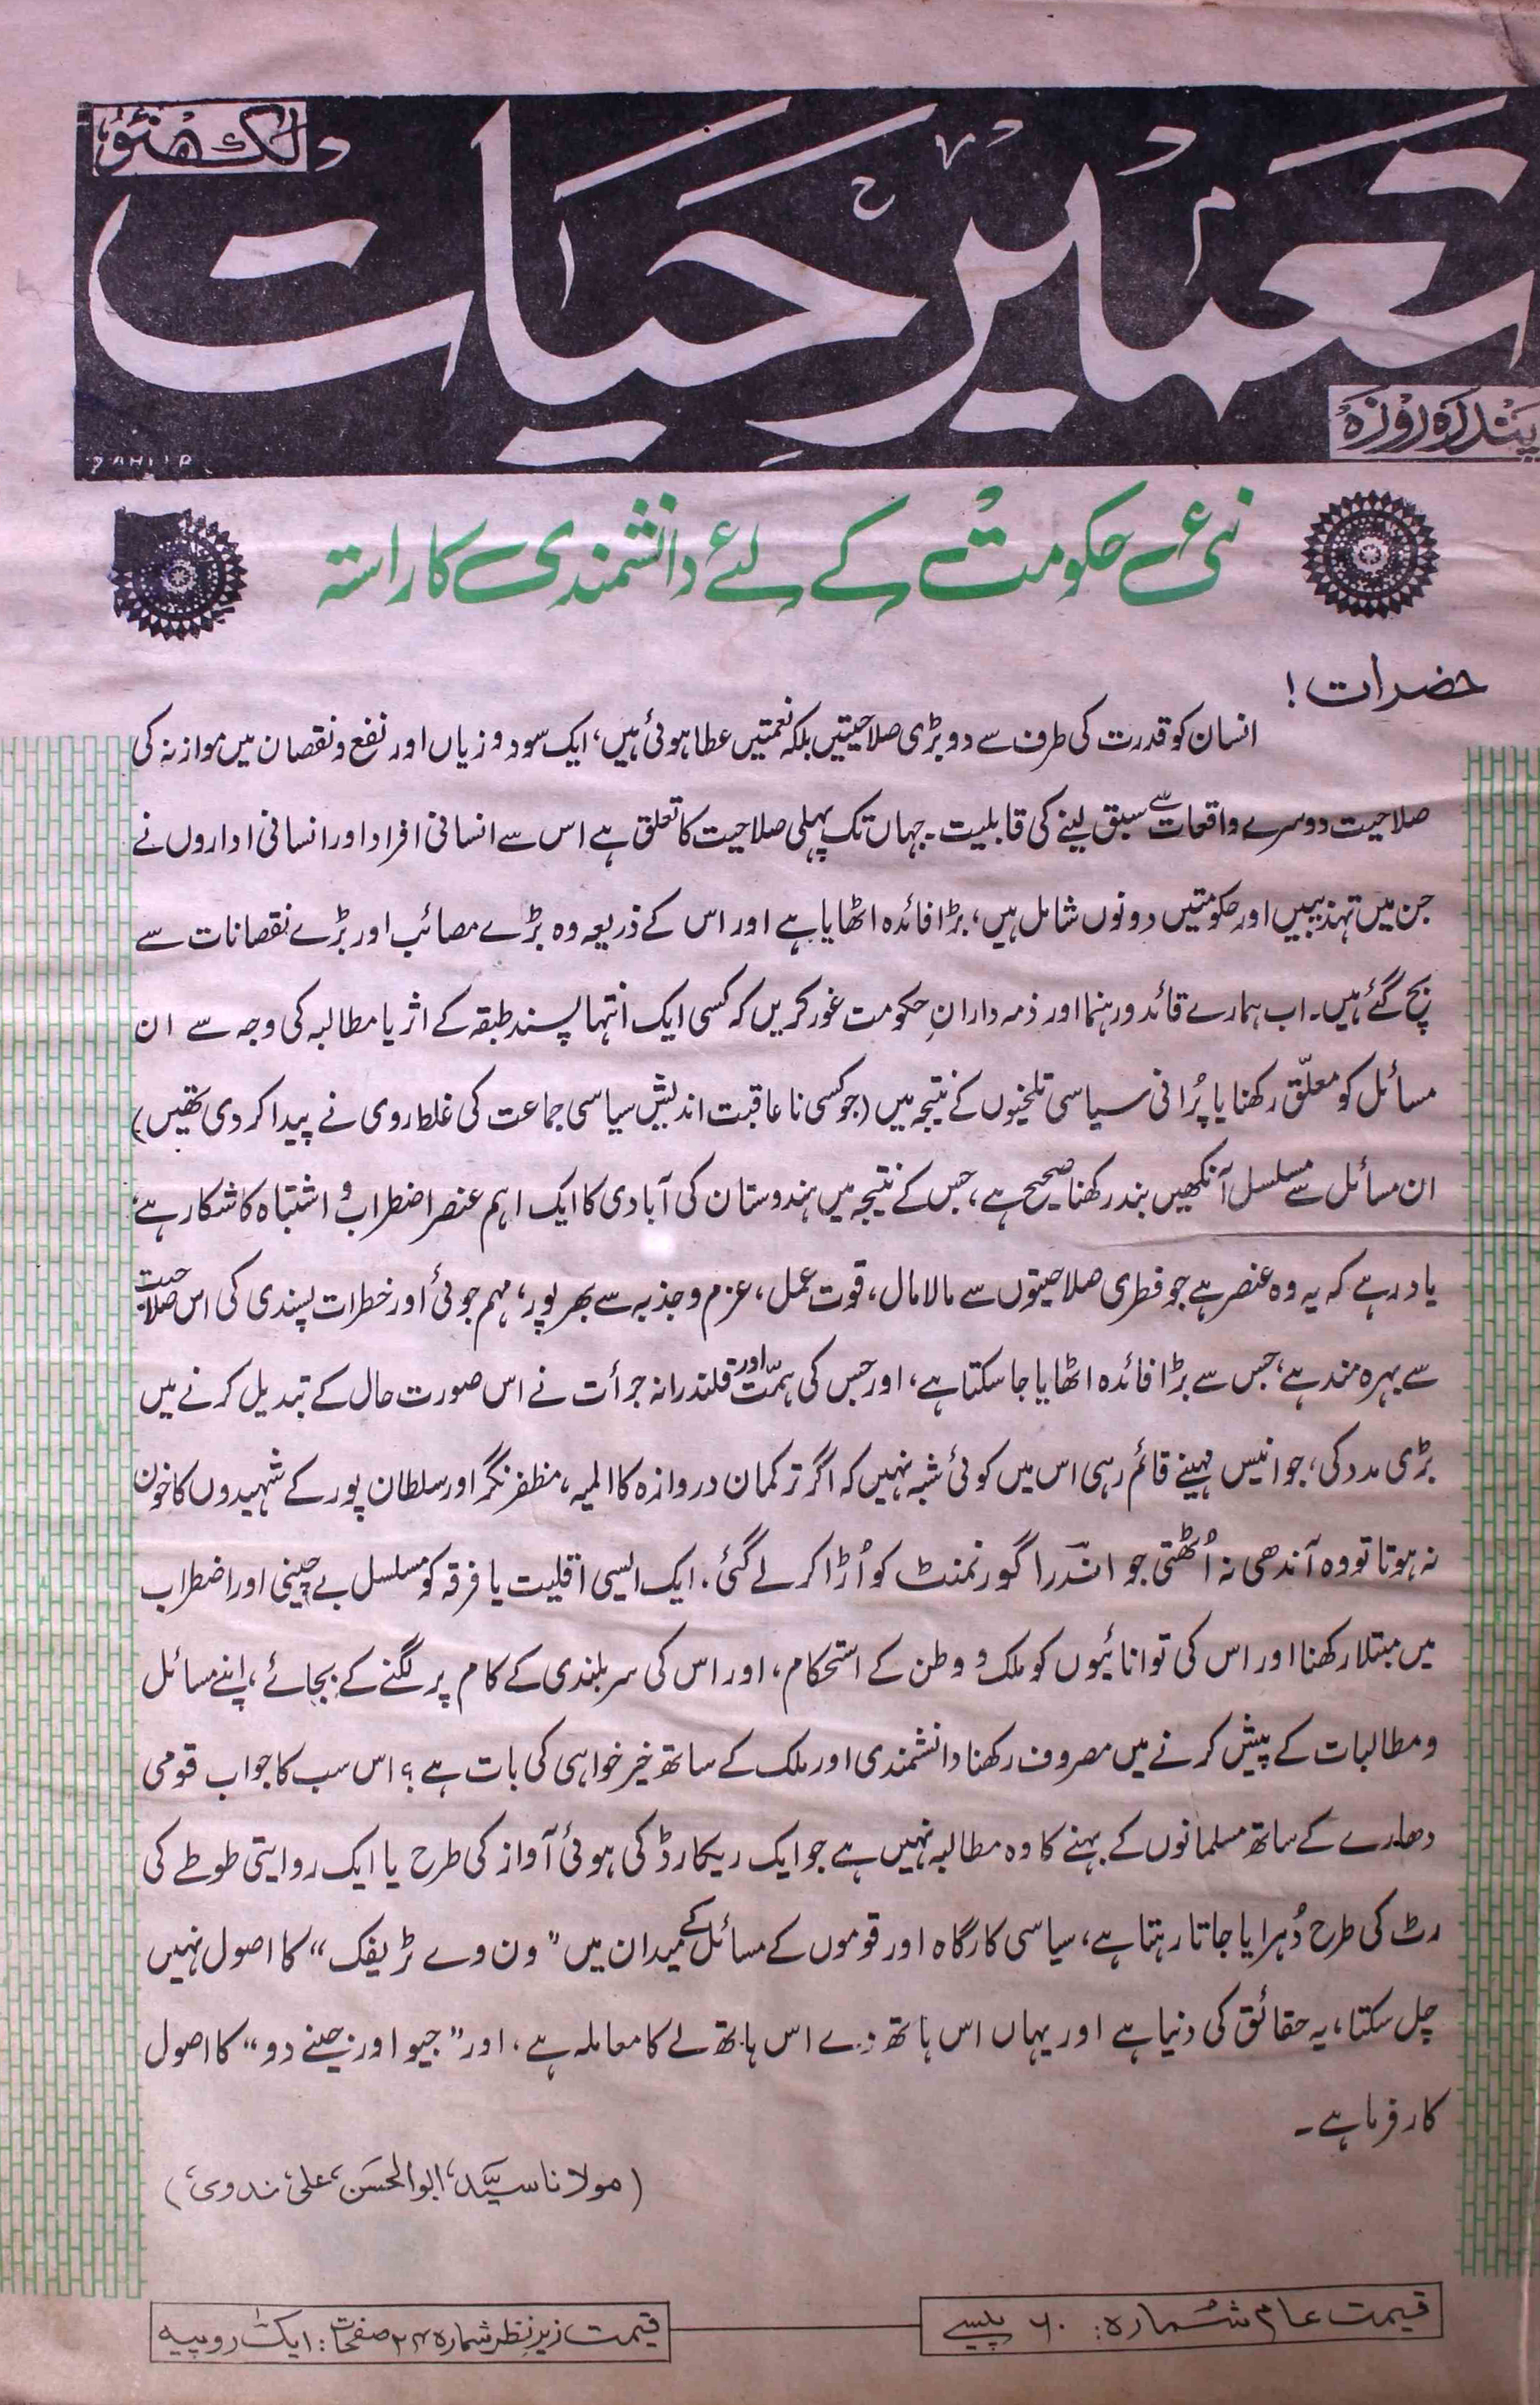 لکھنؤ
تعمیر حیات
پندرہ روزہ
ZAHIIR
نئی حکومت کے لئے دانشمندی کا راستہ
حضرات!
انسان کو قدرت کی طرف سے دو بڑی صلاحیتیں بلکہ نعمتیں عطا ہوئی ہیں، ایک سود و زیاں اور نفع و نقصان میں موازنہ کی
صلاحیت دوسرے واقعات سے سبق لینے کی قابلیت۔ جہاں تک پہلی صلاحیت کا تعلق ہے اس سے انسانی افراد اور انسانی اداروں نے
جن میں تہذیبیں اور حکومتیں دونوں شامل ہیں، بڑا فائدہ اٹھایا ہے اور اس کے ذریعہ وہ بڑے مصائب اور بڑے نقصانات سے
بچ گئے ہیں۔ اب ہمارے قائد و رہنما اور ذمہ دارانِ حکومت غور کریں کہ کسی ایک انتہا پسند طبقہ کے اثر یا مطالبہ کی وجہ سے ان
مسائل کو معلّق رکھنا یا پُرانی سیاسی تلخیوں کے نتیجہ میں (جو کسی نا عاقبت اندیش سیاسی جماعت کی غلط روی نے پیدا کر دی تھیں)
ان مسائل سے مسلسل آنکھیں بند رکھنا صحیح ہے، جس کے نتیجہ میں ہندوستان کی آبادی کا ایک اہم عنصر اضطراب و اشتباہ کا شکار ہے،
یاد رہے کہ یہ وہ عنصر ہے جو فطری صلاحیتوں سے مالا مال، قوت عمل، عزم و جذبہ سے بھرپور، مہم جوئی اور خطرات پسندی کی اس صلاحیت
سے بہرہ مند ہے، جس سے بڑا فائدہ اٹھایا جا سکتا ہے، اور جس کی ہمّت اور قلندرانہ جرأت نے اس صورت حال کے تبدیل کرنے میں
بڑی مدد کی، جو انیس مہینے قائم رہی اس میں کوئی شبہ نہیں کہ اگر ترکمان دروازہ کا المیہ، مظفر نگر اور سلطان پور کے شہیدوں کا خون
نہ ہوتا تو وہ آندھی نہ اُٹھتی جو اندرا گورنمنٹ کو اُڑا کر لے گئی۔ ایک ایسی اقلیت یا فرقہ کو مسلسل بے چینی اور اضطراب
میں مبتلا رکھنا اور اس کی توانائیوں کو ملک و وطن کے استحکام، اور اس کی سربلندی کے کام پر لگنے کے بجائے، اپنے مسائل
و مطالبات کے پیش کرنے میں مصروف رکھنا دانشمندی اور ملک کے ساتھ خیر خواہی کی بات ہے؟ اس سب کا جواب قومی
دھارے کے ساتھ مسلمانوں کے بہنے کا وہ مطالبہ نہیں ہے جو ایک ریکارڈ کی ہوئی آواز کی طرح یا ایک روایتی طوطے کی
رٹ کی طرح دُہرایا جاتا رہتا ہے، سیاسی کارگاہ اور قوموں کے مسائل کے میدان میں "ون وے ٹریفک" کا اصول نہیں
چل سکتا، یہ حقائق کی دنیا ہے اور یہاں اس ہاتھ دے اس ہاتھ لے کا معاملہ ہے، اور "جیو اور جینے دو" کا اصول
کار فرما ہے۔
(مولانا سیّد ابوالحسن علی ندوی)
قیمت عام شمارہ: ۶۰ پیسے
قیمت زیر نظر شمارہ ۲۴ صفحات: ایک روپیہ